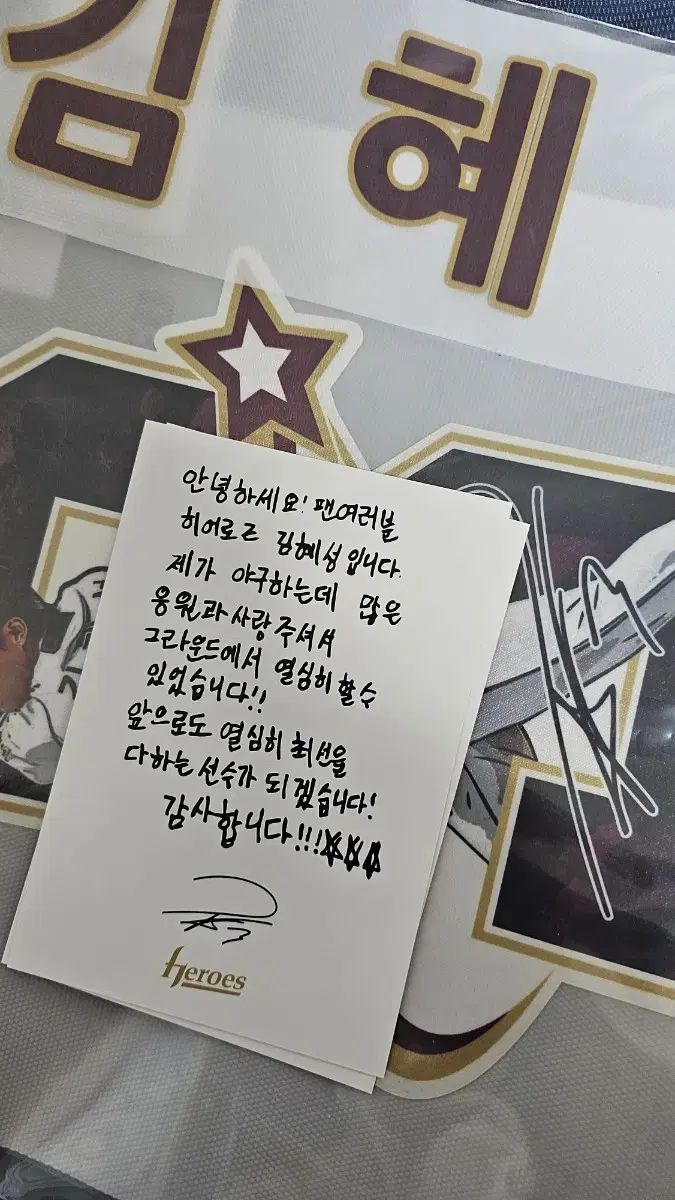 김혜
안녕하세요! 팬여러분
히어로즈 김혜성입니다.
제가 야구하는데 많은
응원과 사랑 주셔서
그라운드에서 열심히 할수
있었습니다!!
앞으로도 열심히 최선을
다하는 선수가 되겠습니다!
감사합니다!!!☆☆☆
Heroes